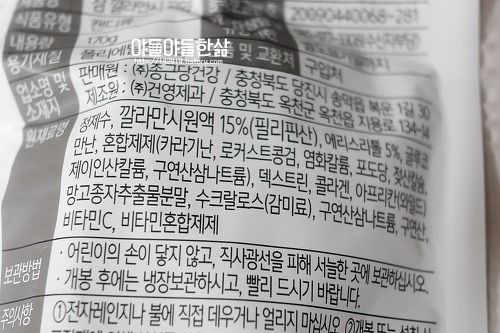 식품유형 캔디류
200904400068-281
내용량 170g
용기재질 폴리에틸렌
및 교환처 구입처
아들아들한삶
업소명 및 소재지
판매원 : (주)종근당건강 / 충청북도 당진시 송악읍 복운 1길 30
제조원 : (주)건영제과 / 충청북도 옥천군 옥천읍 지용로 134-14
원재료명
정제수, 깔라만시원액 15%(필리핀산), 에리스리톨 5%, 글루코
만난, 혼합제제(카라기난, 로커스트콩검, 염화칼륨, 포도당, 젖산칼슘,
제이인산칼륨, 구연산삼나트륨), 덱스트린, 콜라겐, 아프리칸(와일드)
망고종자추출물분말, 수크랄로스(감미료), 구연산삼나트륨, 구연산,
비타민C, 비타민혼합제제
보관방법
· 어린이의 손이 닿지 않고, 직사광선을 피해 서늘한 곳에 보관하십시오.
· 개봉 후에는 냉장보관하시고, 빨리 드시기 바랍니다.
주의사항
①전자레인지나 불에 직접 데우거나 얼리지 마십시오.